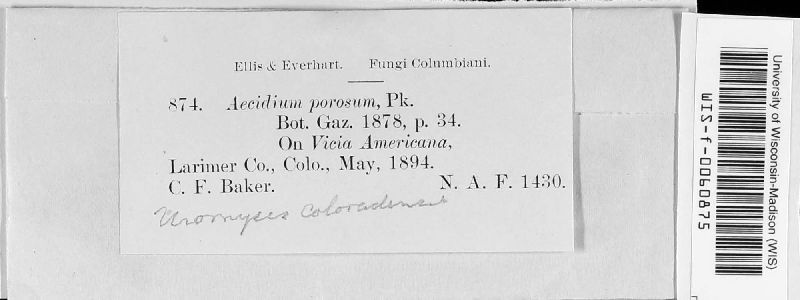 Ellis & Everhart. Fungi Columbiani.
874. Aecidium porosum, Pk.
Bot. Gaz. 1878, p. 34.
On Vicia Americana,
Larimer Co., Colo., May, 1894.
C. F. Baker. N. A. F. 1430.
Uromyces coloradensis
University of Wisconsin-Madison (WIS)
WIS-f-0060875